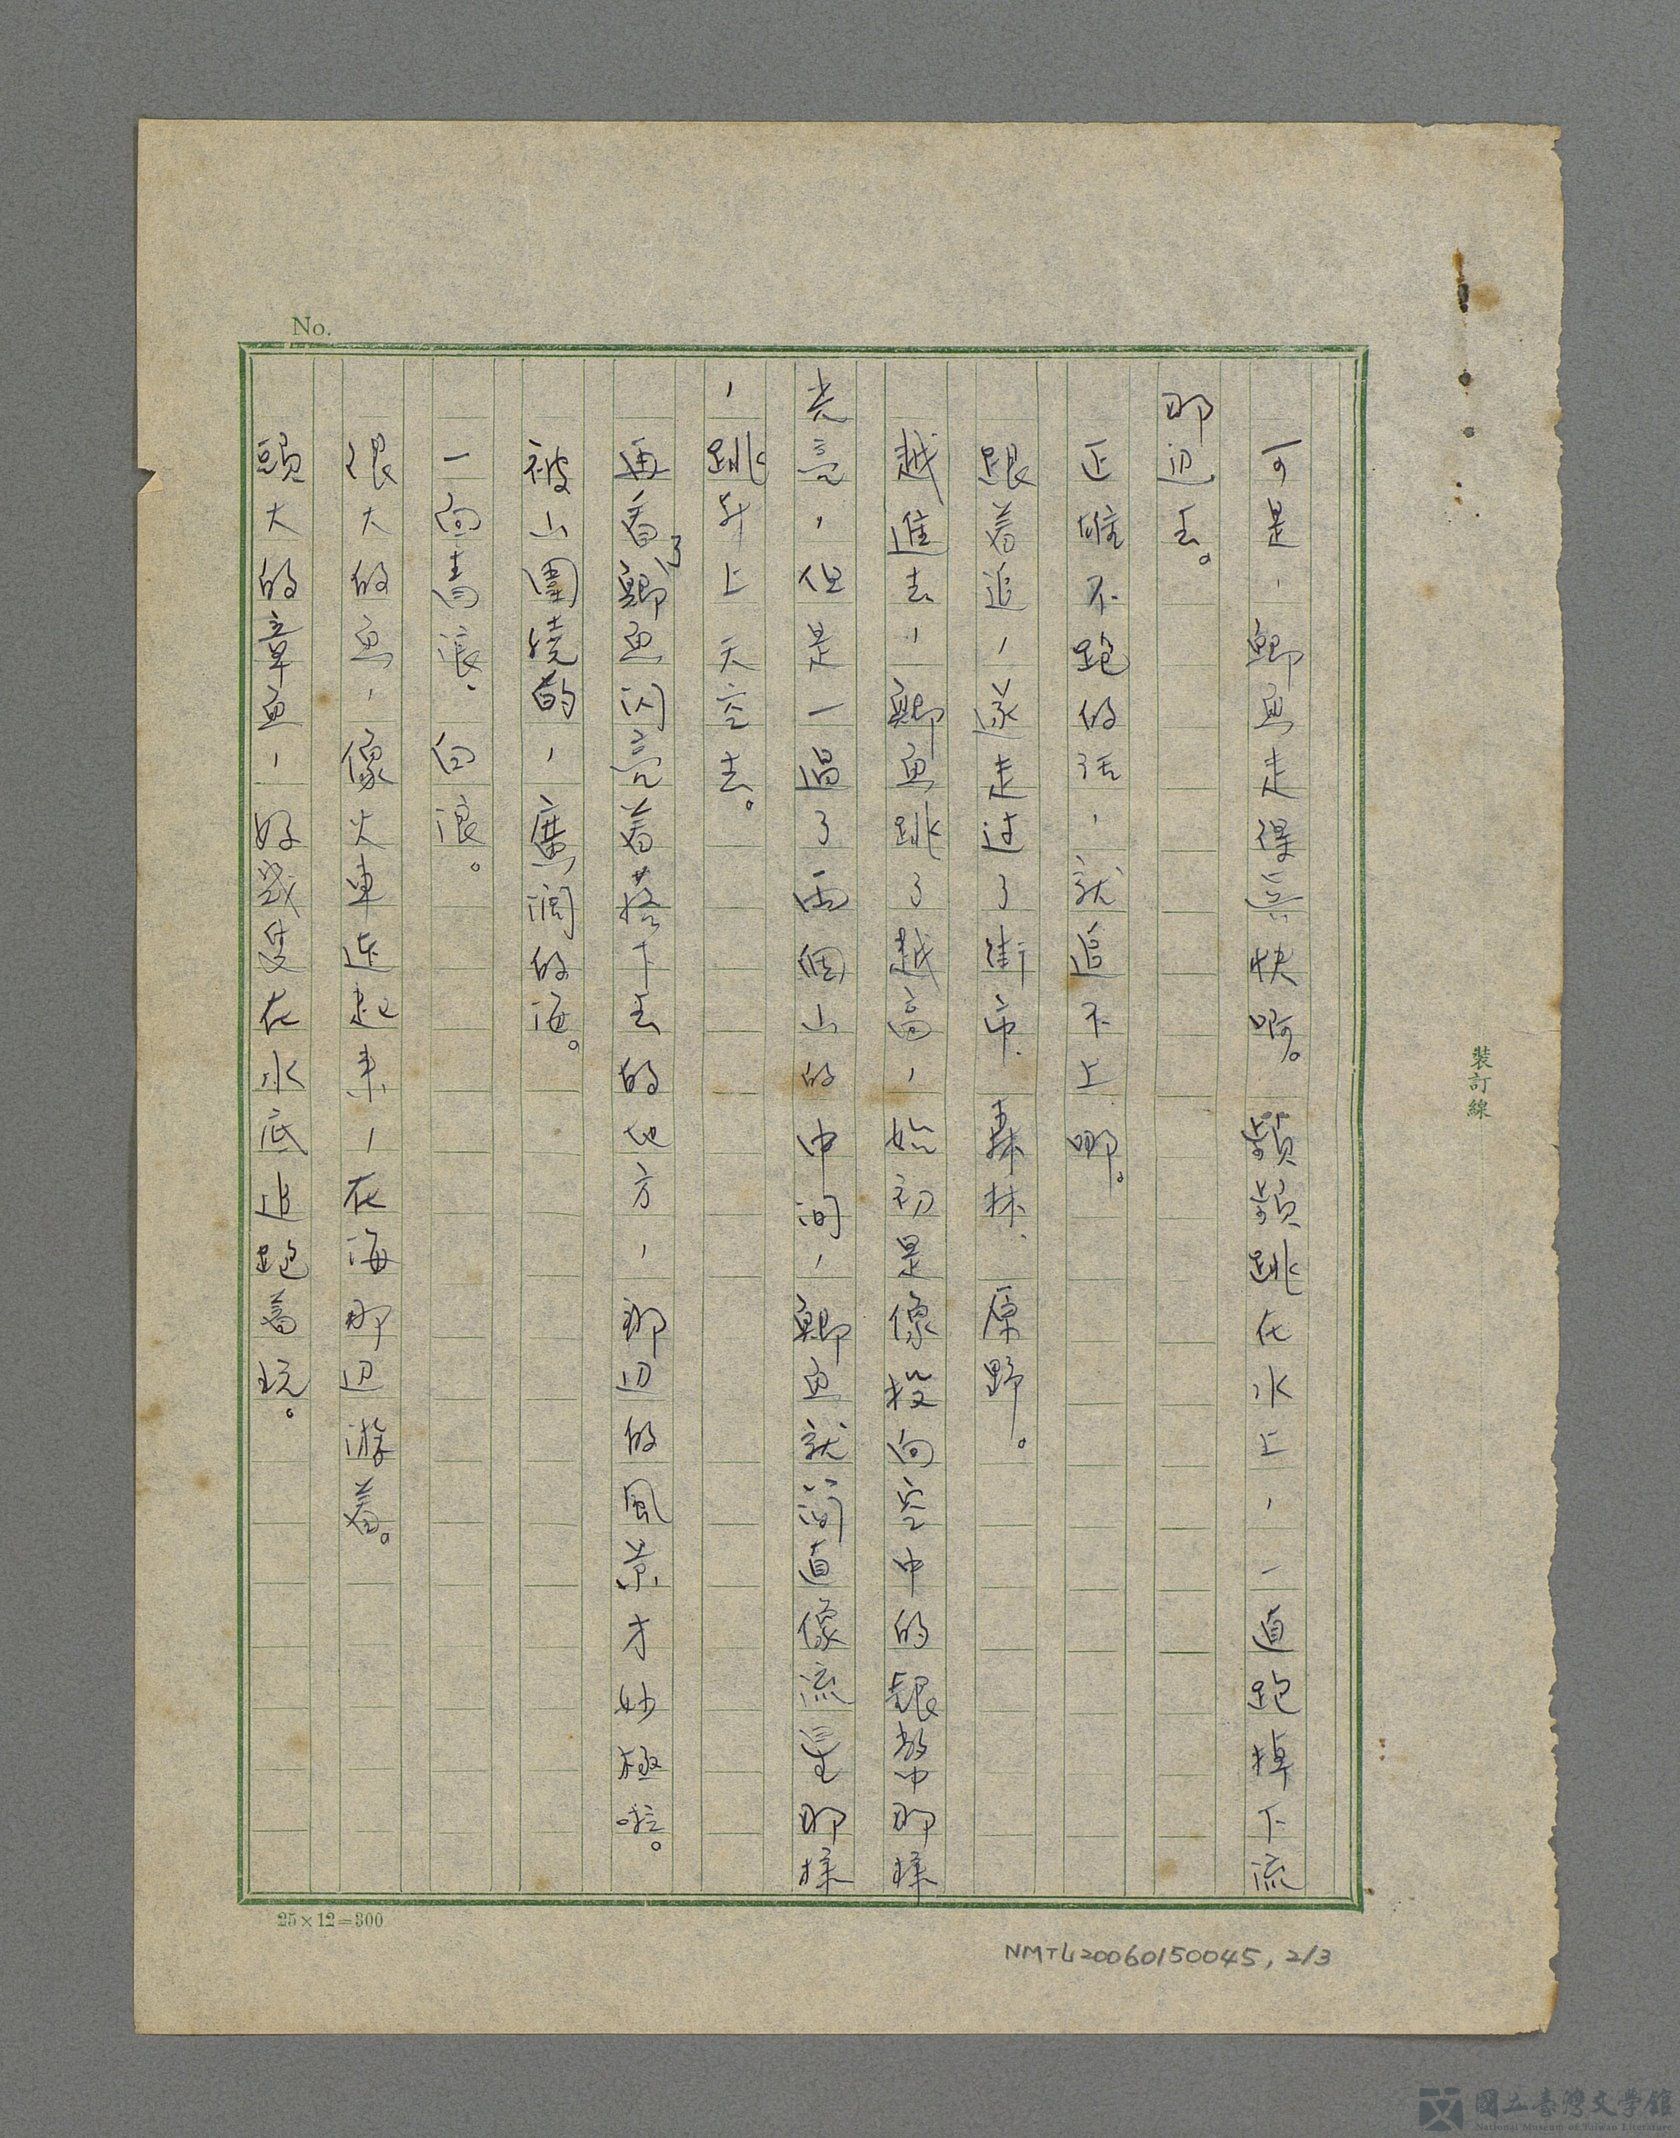 No.
可是，鯽魚走得真快啊。蘋蘋跳在水上，一直跑掉下流
那辺去。
正雄不跑的话，就追不上哪。
跟着追，遂走过了街市、森林、原野。
越進去，鯽魚跳了越高，始初是像投向空中的銀幣那樣
光亮，但是一過了兩個山的中间，鯽魚就简直像流星那樣
，跳升上天空去。
再看了鯽魚闪亮着落下去的地方，那辺的風景才妙極啦。
被山圍繞的，廣濶的海。
一向青浪、白浪。
很大的魚，像火車连起来，在海那辺游着。
頭大的章魚，好幾隻在水底追跑着玩。
裝訂線
25×12=300
NMTL20060150045, 2/3
國立臺灣文學館
National Museum of Taiwan Literature